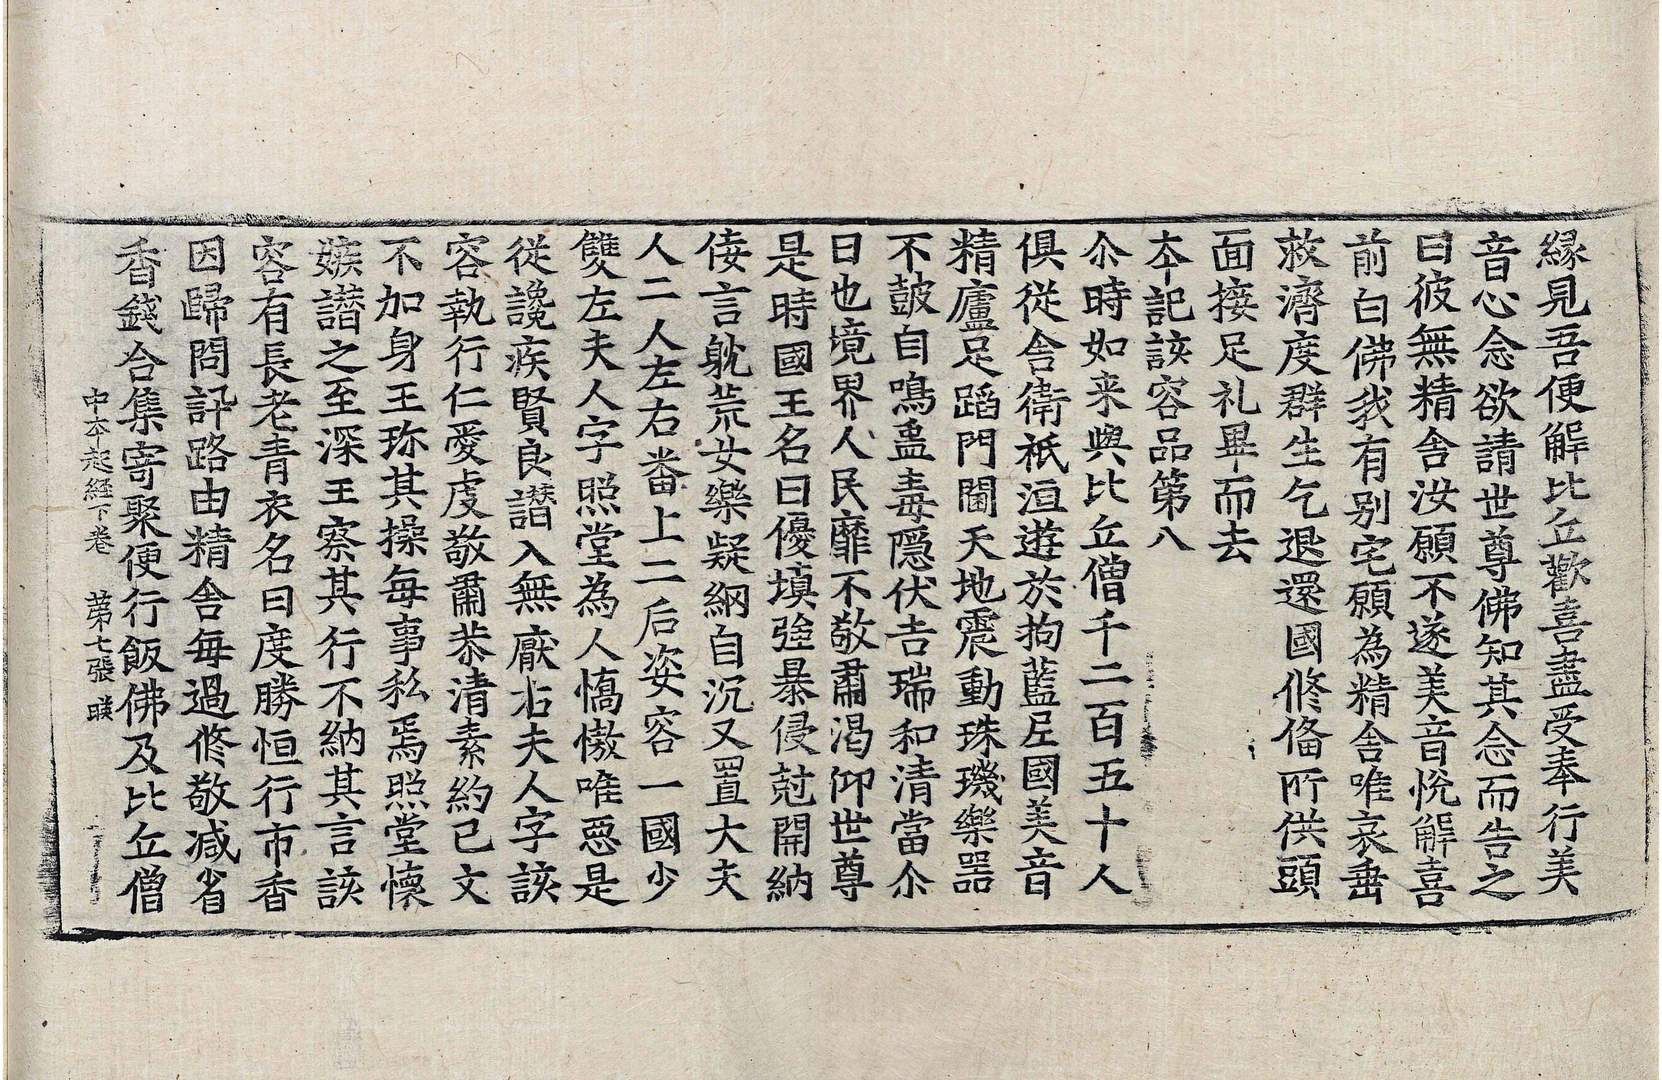 縁見吾便解比丘歡喜盡受奉行美
音心念欲請世尊佛知其念而告之
曰彼無精舍汝願不遂美音悅解喜
前白佛我有别宅願為精舍唯哀垂
救濟度群生乞退還國修俻所供頭
面接足礼畢而去
本記該容品第八
尒時如来與比丘僧千二百五十人
俱從舍衛祇洹遊於拘藍尼國美音
精廬足蹈門閫天地震動珠璣樂器
不鼓自鳴蠱毒隱伏吉瑞和清當尒
日也境界人民靡不敬肅渴仰世尊
是時國王名曰優填強暴侵尅開納
倿言躭荒女樂疑網自沉又置大夫
人二人左右畨上二后姿容一國少
雙左夫人字照堂為人憍慠唯惡是
從讒疾賢良譖入無厭右夫人字該
容執行仁愛虔敬肅恭清素約已文
不加身王珎其操每事私焉照堂懷
嫉譖之至深王察其行不納其言該
容有長老青衣名曰度勝恒行市香
因歸問訊路由精舍每過修敬减省
香錢合集寄聚便行飯佛及比丘僧
中本起経下卷　第七張